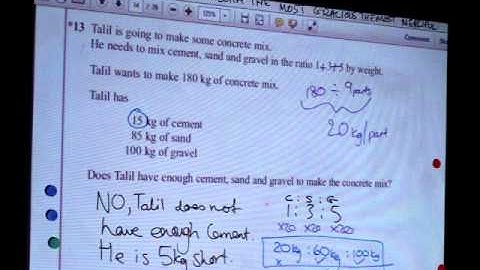 THE MOST GRACIOUS THE MOST MERCIFUL
*13 Talil is going to make some concrete mix.
He needs to mix cement, sand and gravel in the ratio 1:3:5 by weight.
Talil wants to make 180 kg of concrete mix.
180 ÷ 9 parts
20kg/part
Talil has
15 kg of cement
85 kg of sand
100 kg of gravel
Does Talil have enough cement, sand and gravel to make the concrete mix?
C : S : G
1 : 3 : 5
x20 x20 x20
20kg : 60kg : 100kg
x
NO, Talil does not
have enough cement.
He is 5kg short.